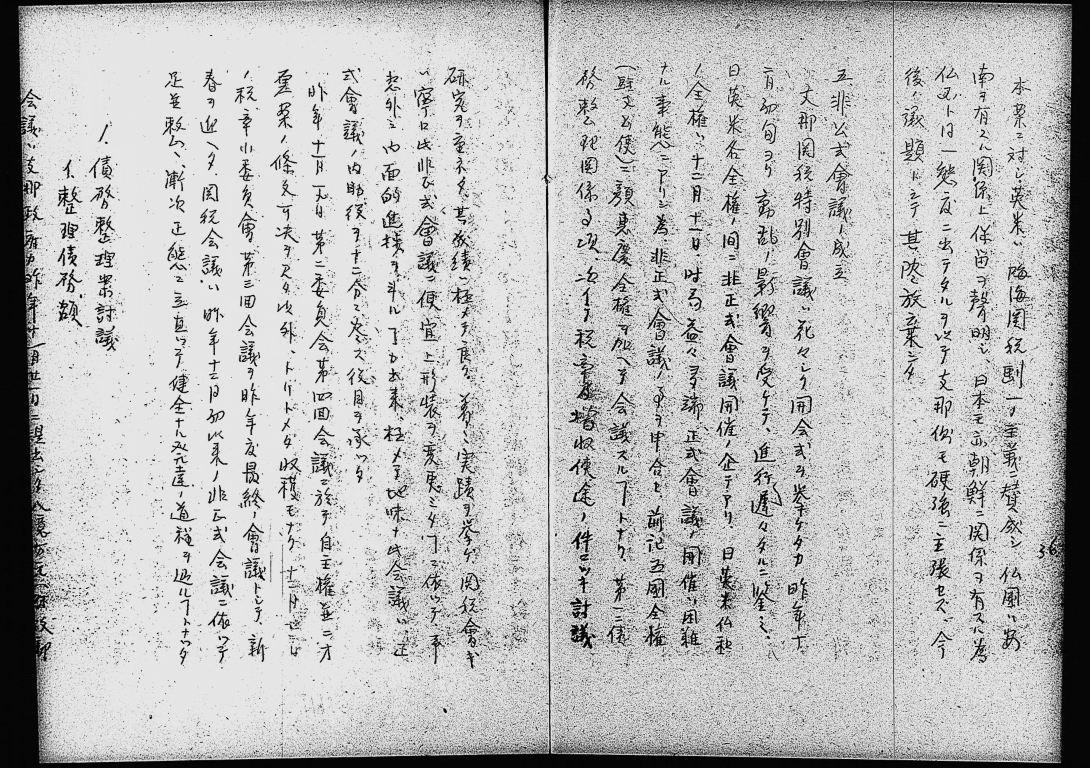 本案ニ対シ英米ハ陸海関税劃一ノ主義ニ賛成シ仏國ハ安
南ヲ有スル関係上保留ヲ声明シ日本モ亦朝鮮ニ関係ヲ有スル為
仏國ト同一態度ニ出テタルヲ以テ支那側モ硬強ニ主張セズ今
後ノ議題トシテ其侭放棄シタ
五 非公式會議ノ成立
支那関税特別會議ハ花々シク開会式ヲ挙ケタカ昨年十
一月初旬ヨリ動乱ノ影響ヲ受ケテ進行遅々タルニ鑒ミ
日英米各全権ノ間ニ非正式會議開催ノ企テアリ日英米仏
ノ全権ハ十二月十一日時局益々多端正式會議ノ開催ハ困難
ナル事態ニアリシ為非正式會議ノ申合ヒ前記五國全権
顔恵慶全権ヲ加ヘテ会議スルコトナリ第一ニ債
務整理関係事項、次イテ税率増収使途ノ件ニツキ討議
研究ヲ重ネタ其成績ハ極メテ良ク着々実蹟ヲ挙ケ関税會議
ハ寧ロ此非正式會議ニ便宜上形装ヲ変更シタコトニ依ツテ
意外ニ内面的進捗ヲ計ル了カ出来、極メテ地味ナ此会議ハ正
式會議ノ内助役ヲ十二分ニ尽ス役目ヲ承ツタ
昨年十一月 日第二委員会第四回会議ニ於テ自主権並ニ
ノ條文可決ヲ見タ以外、トリトメタ収穫モナク十二月
ノ税率小委員會第三回会議ヲ昨年度最終ノ會議トシテ新
春ヲ迎ヘタ関税会議ハ昨年十二月初以来ノ非正式会議ニ依ツテ
足並整ヘ漸次正態ニ立直ツテ健全ナル発達ノ道程ヲ辿ルコトナツタ
1. 債務整理案討議
イ. 整理債務額
会議ハ支那政府カ昨年十一月廿一日ニ提出シタ